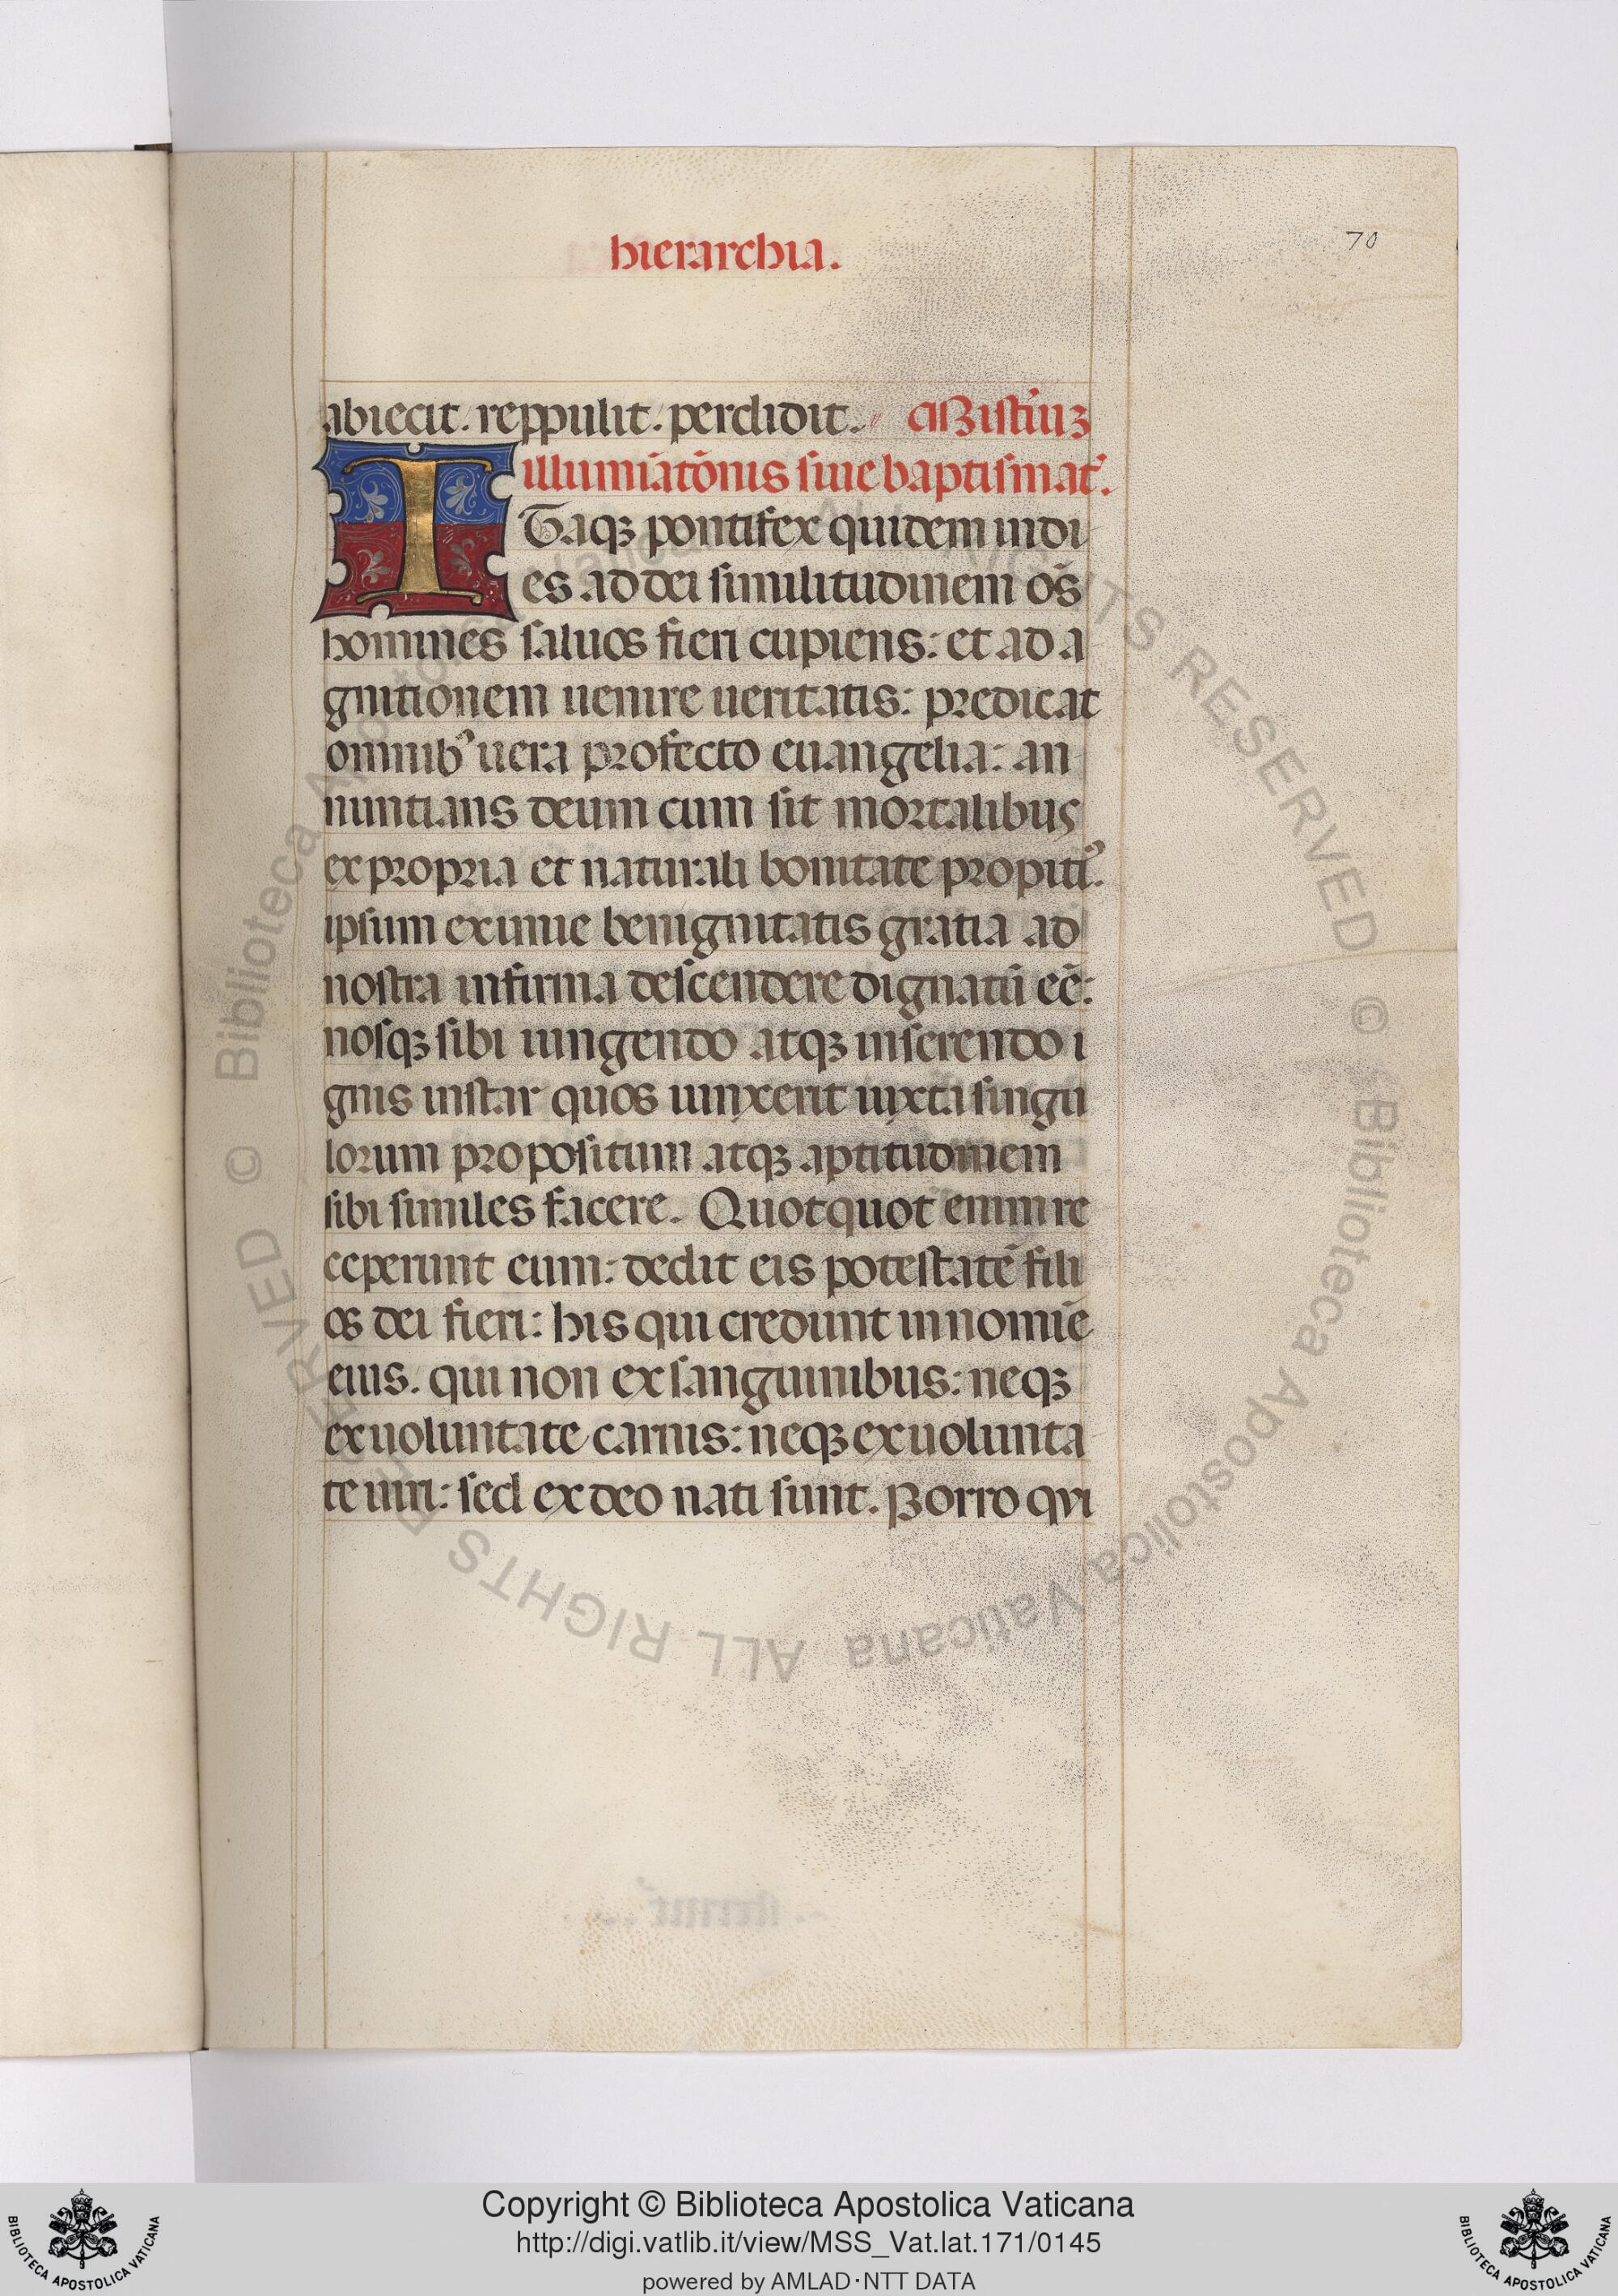 hierarchia.
70
abiecit. reppulit. perdidit. Misteriuʒ
illumīatōnis siue baptismatꝰ.
ITaqʒ pontifex quidem in di
es ad dei similitudinem oēs
homines saluos fieri cupiens: et ad a
gnitionem uenire ueritatis: predicat
omnibꝰ uera profecto euangelia: an
nuntians deum cum sit mortalibus
ex propria et naturali bonitate propitiꝰ.
ipsum eximie benignitatis gratia ad
nostra infirma descendere dignatū eē:
nosqʒ sibi iungendo atqʒ inserendo i
gnis instar quos iunxerit iuxta singu
lorum propositum atqʒ aptitudinem
sibi similes facere. Quotquot enim re
ceperunt eum: dedit eis potestatē fili
os dei fieri: his qui credunt in nomīe
eius. qui non ex sanguinibus: neqʒ
ex uoluntate carnis: neqʒ ex uolunta
te uiri: sed ex deo nati sunt. Porro qui
Copyright © Biblioteca Apostolica Vaticana
http://digi.vatlib.it/view/MSS_Vat.lat.171/0145
powered by AMLAD·NTT DATA
BIBLIOTECA APOSTOLICA VATICANA
BIBLIOTECA APOSTOLICA VATICANA
© Biblioteca Apostolica Vaticana ALL RIGHTS RESERVED
© Biblioteca Apostolica Vaticana ALL RIGHTS RESERVED